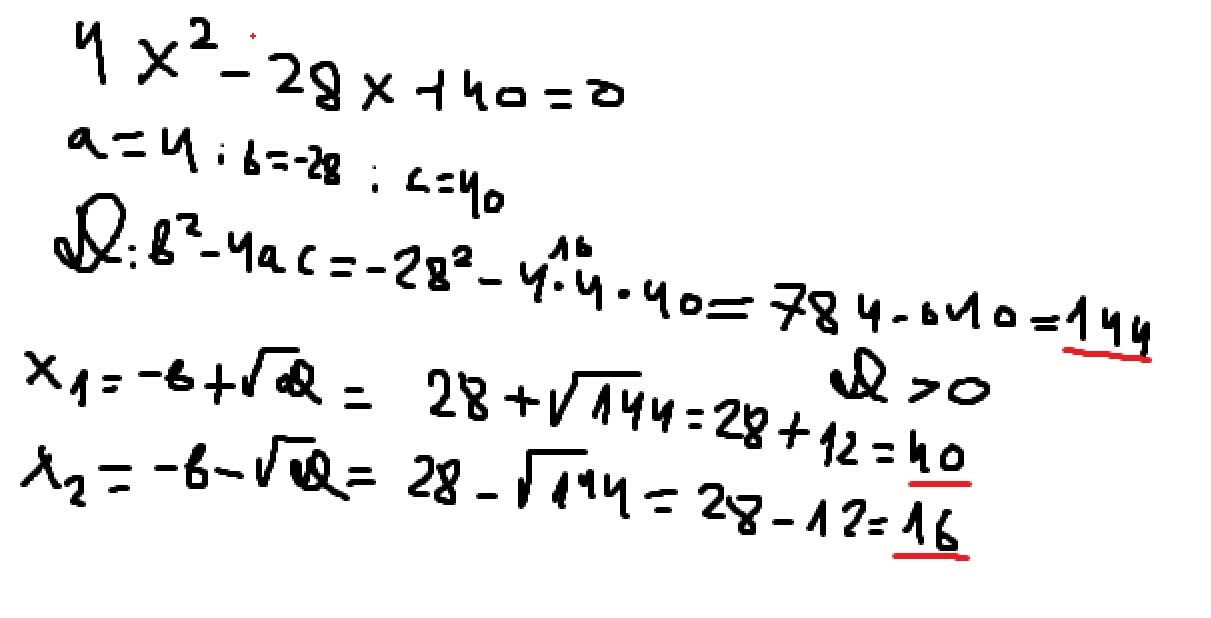 4x² - 28x + 40 = 0
a = 4 ; b = -28 ; c = 40
D: b² - 4ac = -28² - 4 · 4 · 40 = 784 - 640 = 144
16
D > 0
x₁ = -b + √D = 28 + √144 = 28 + 12 = 40
x₂ = -b - √D = 28 - √144 = 28 - 12 = 16